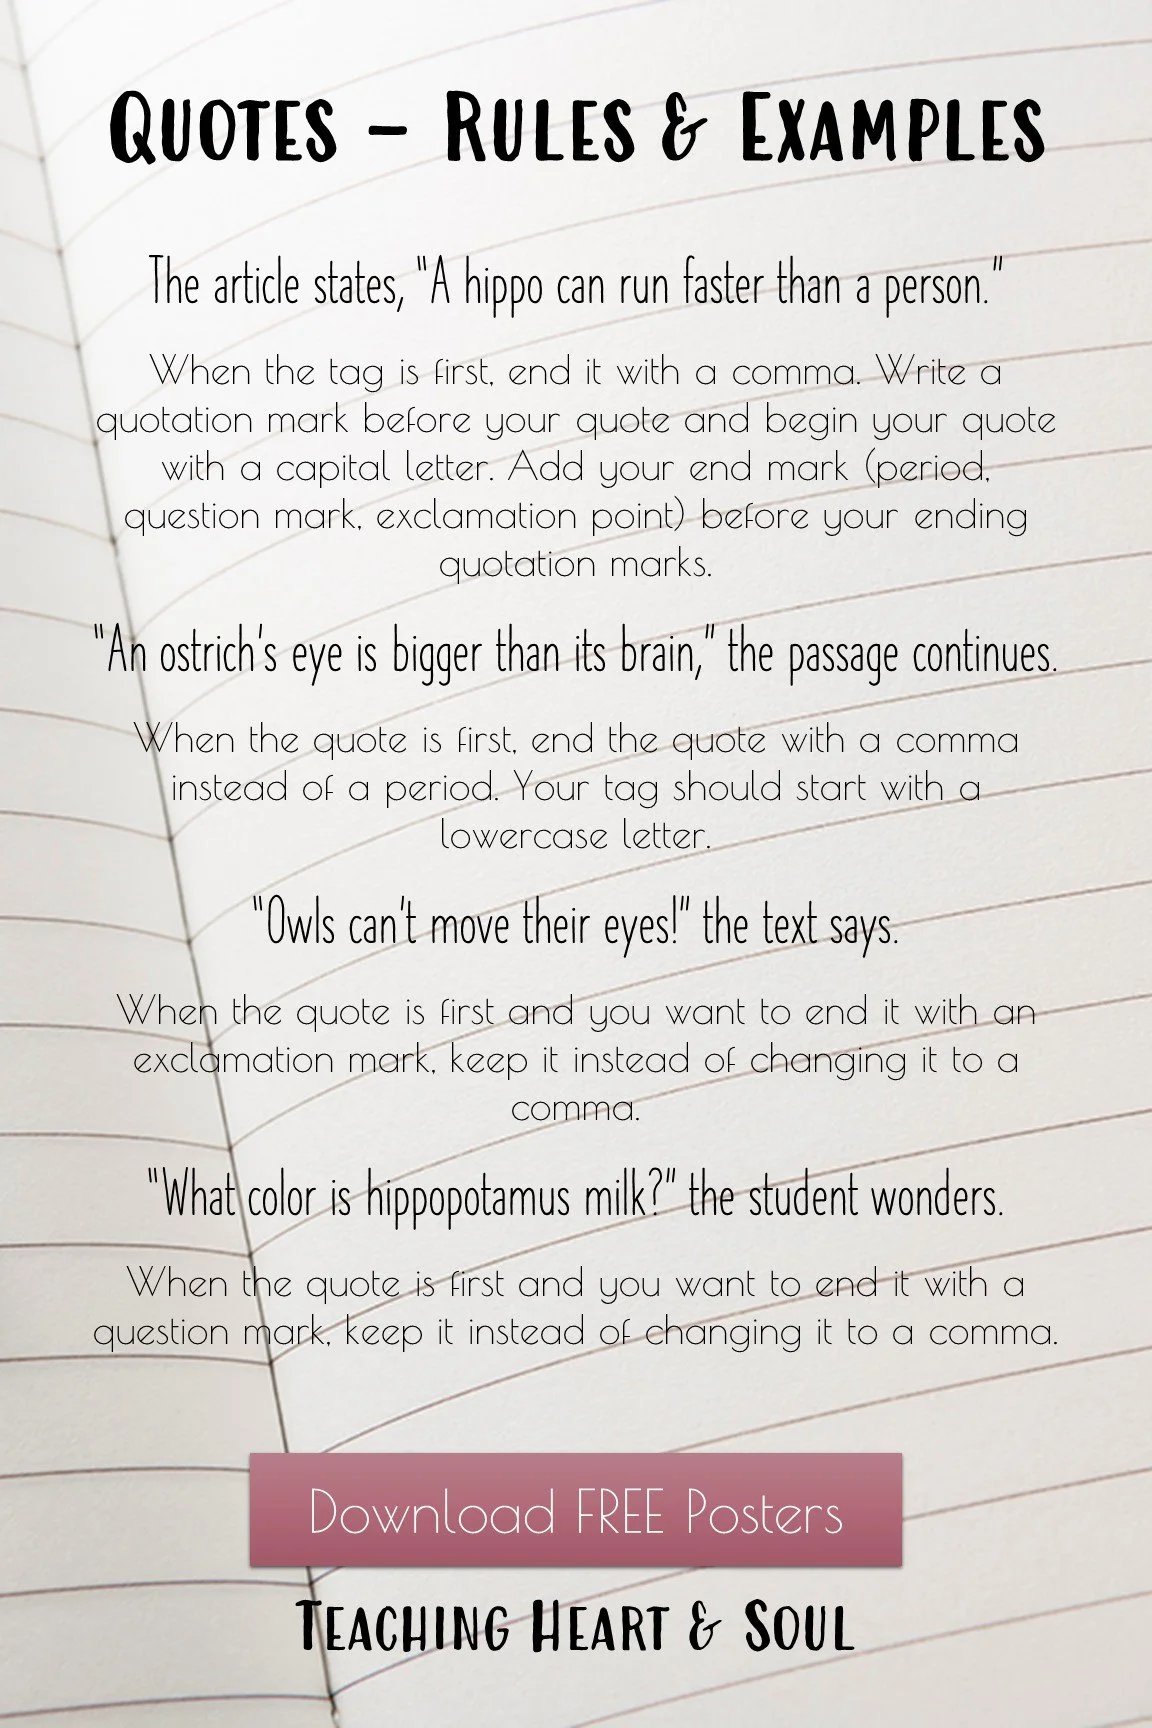 QUOTES - RULES & EXAMPLES
The article states, "A hippo can run faster than a person."
When the tag is first, end it with a comma. Write a
quotation mark before your quote and begin your quote
with a capital letter. Add your end mark (period,
question mark, exclamation point) before your ending
quotation marks.
"An ostrich's eye is bigger than its brain," the passage continues.
When the quote is first, end the quote with a comma
instead of a period. Your tag should start with a
lowercase letter.
"Owls can't move their eyes!" the text says.
When the quote is first and you want to end it with an
exclamation mark, keep it instead of changing it to a
comma.
"What color is hippopotamus milk?" the student wonders.
When the quote is first and you want to end it with a
question mark, keep it instead of changing it to a comma.
Download FREE Posters
TEACHING HEART & SOUL